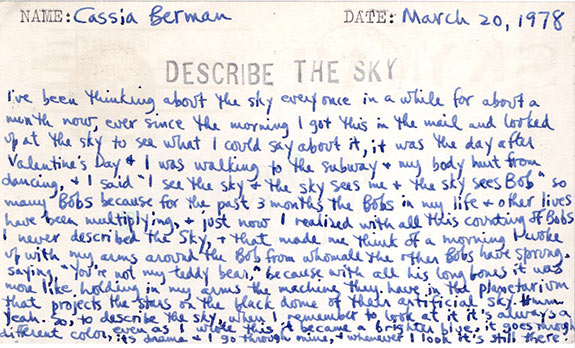 NAME: Cassia Berman DATE: March 20, 1978
DESCRIBE THE SKY
I've been thinking about the sky every once in a while for about a
month now, ever since the morning I got this in the mail and looked
up at the sky to see what I could say about it, it was the day after
Valentine's Day & I was walking to the subway & my body hurt from
dancing, & I said "I see the sky & the sky sees me & the sky sees Bob" so
many Bobs because for the past 3 months the Bobs in my life & other lives
have been multiplying, & just now I realized with all this counting of Bobs
I never described the sky, & that made me think of a morning I woke
up with my arms around the Bob from whom all the other Bobs have sprung,
saying, "You're not my teddy bear," because with all his long bones it was
more like holding in my arms the machine they have in the planetarium
that projects the stars on the black dome of their artificial sky. Hmm
yeah. So, to describe the sky, when I remember to look at it it's always a
different color, even as I wrote this it became a brighter blue, it goes through
its drama & I go through mine, & whenever I look it's still there.